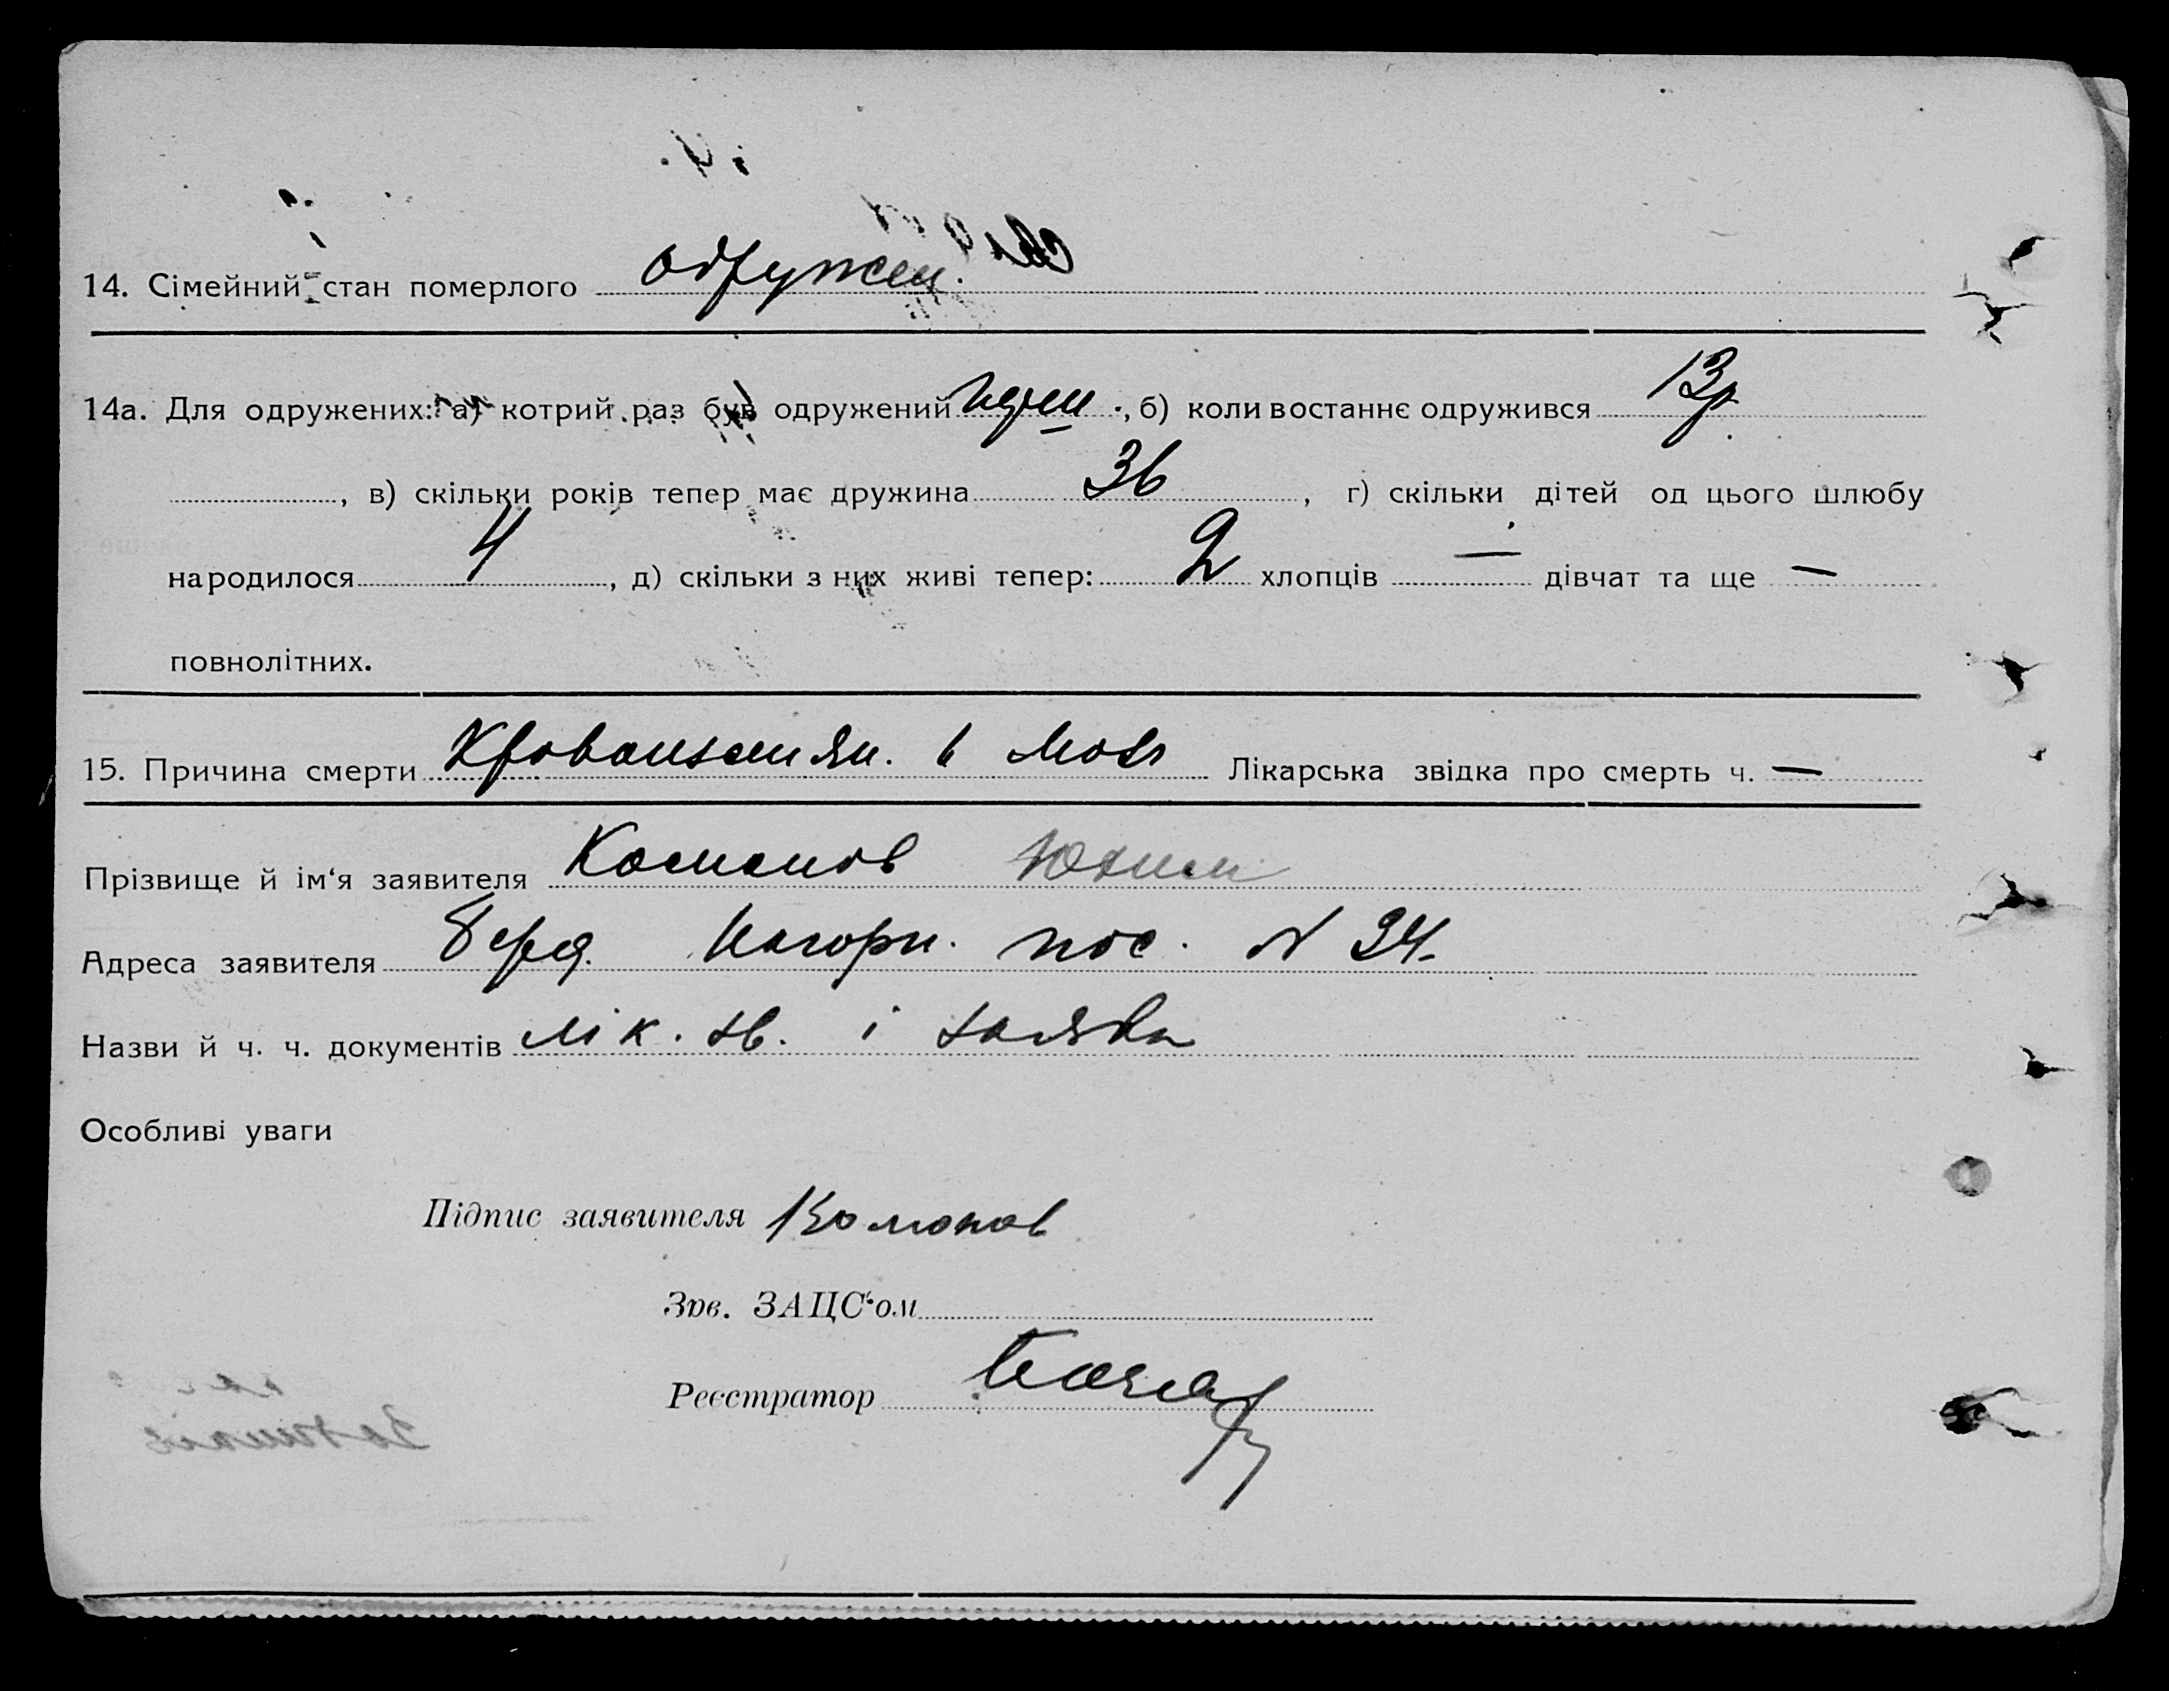 14. Сімейний стан померлого одружен.
14а. Для одружених: а) котрий раз був одружений перш., б) коли востаннє одружився 13 р.
, в) скільки років тепер має дружина 36, г) скільки дітей од цього шлюбу
народилося 4, д) скільки з них живі тепер: 2 хлопців — дівчат та ще —
повнолітних.
15. Причина смерти в мозг Лікарська звідка про смерть ч. —
Прізвище й ім'я заявителя Юхим
Адреса заявителя Нагорн. пос. N 34.
Назви й ч. ч. документів лік. зв. і заява
Особливі уваги
Підпис заявителя Команов
Зав. ЗАЦС'ом
Реєстратор